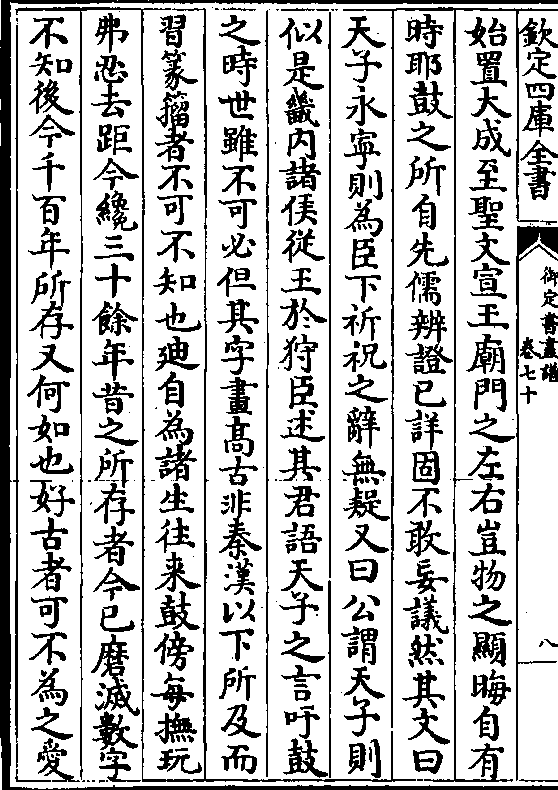 欽定四庫全書
御定書畫譜
卷七十
八
始置大成至聖文宣王廟門之左右豈物之顯晦自有
時耶鼓之所自先儒辨證已詳固不敢妄議然其文曰
天子永寧則為臣下祈祝之辭無疑又曰公謂天子則
似是畿内諸侯從王於狩臣述其君語天子之言吁鼓
之時世雖不可必但其字畫高古非秦漢以下所及而
習篆籀者不可不知也廸自為諸生往来鼓傍每撫玩
弗忍去距今纔三十餘年昔之所存者今已磨滅數字
不知後今千百年所存又何如也好古者可不為之愛